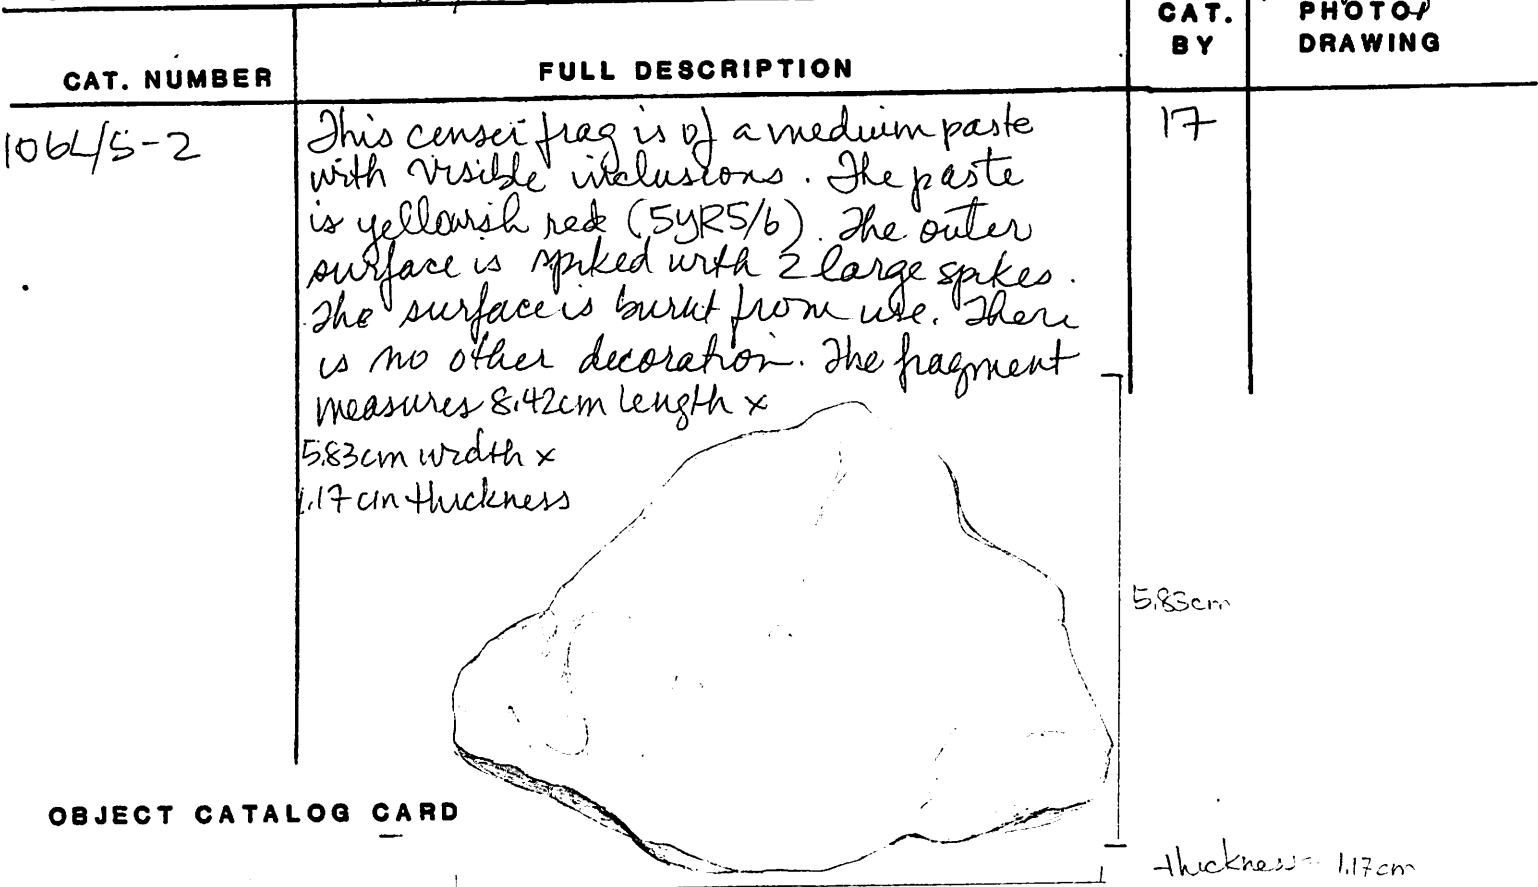 CAT. NUMBER
FULL DESCRIPTION
CAT.
BY
PHOTO/
DRAWING
106L/5-2
This censer frag is of a medium paste
with visible inclusions. The paste
is yellowish red (5YR5/6). The outer
surface is spiked with 2 large spikes.
The surface is burnt from use. There
is no other decoration. The fragment
measures 8.42cm length x
5.83cm width x
1.17cm thickness
17
5.83cm
OBJECT CATALOG CARD
thickness - 1.17cm